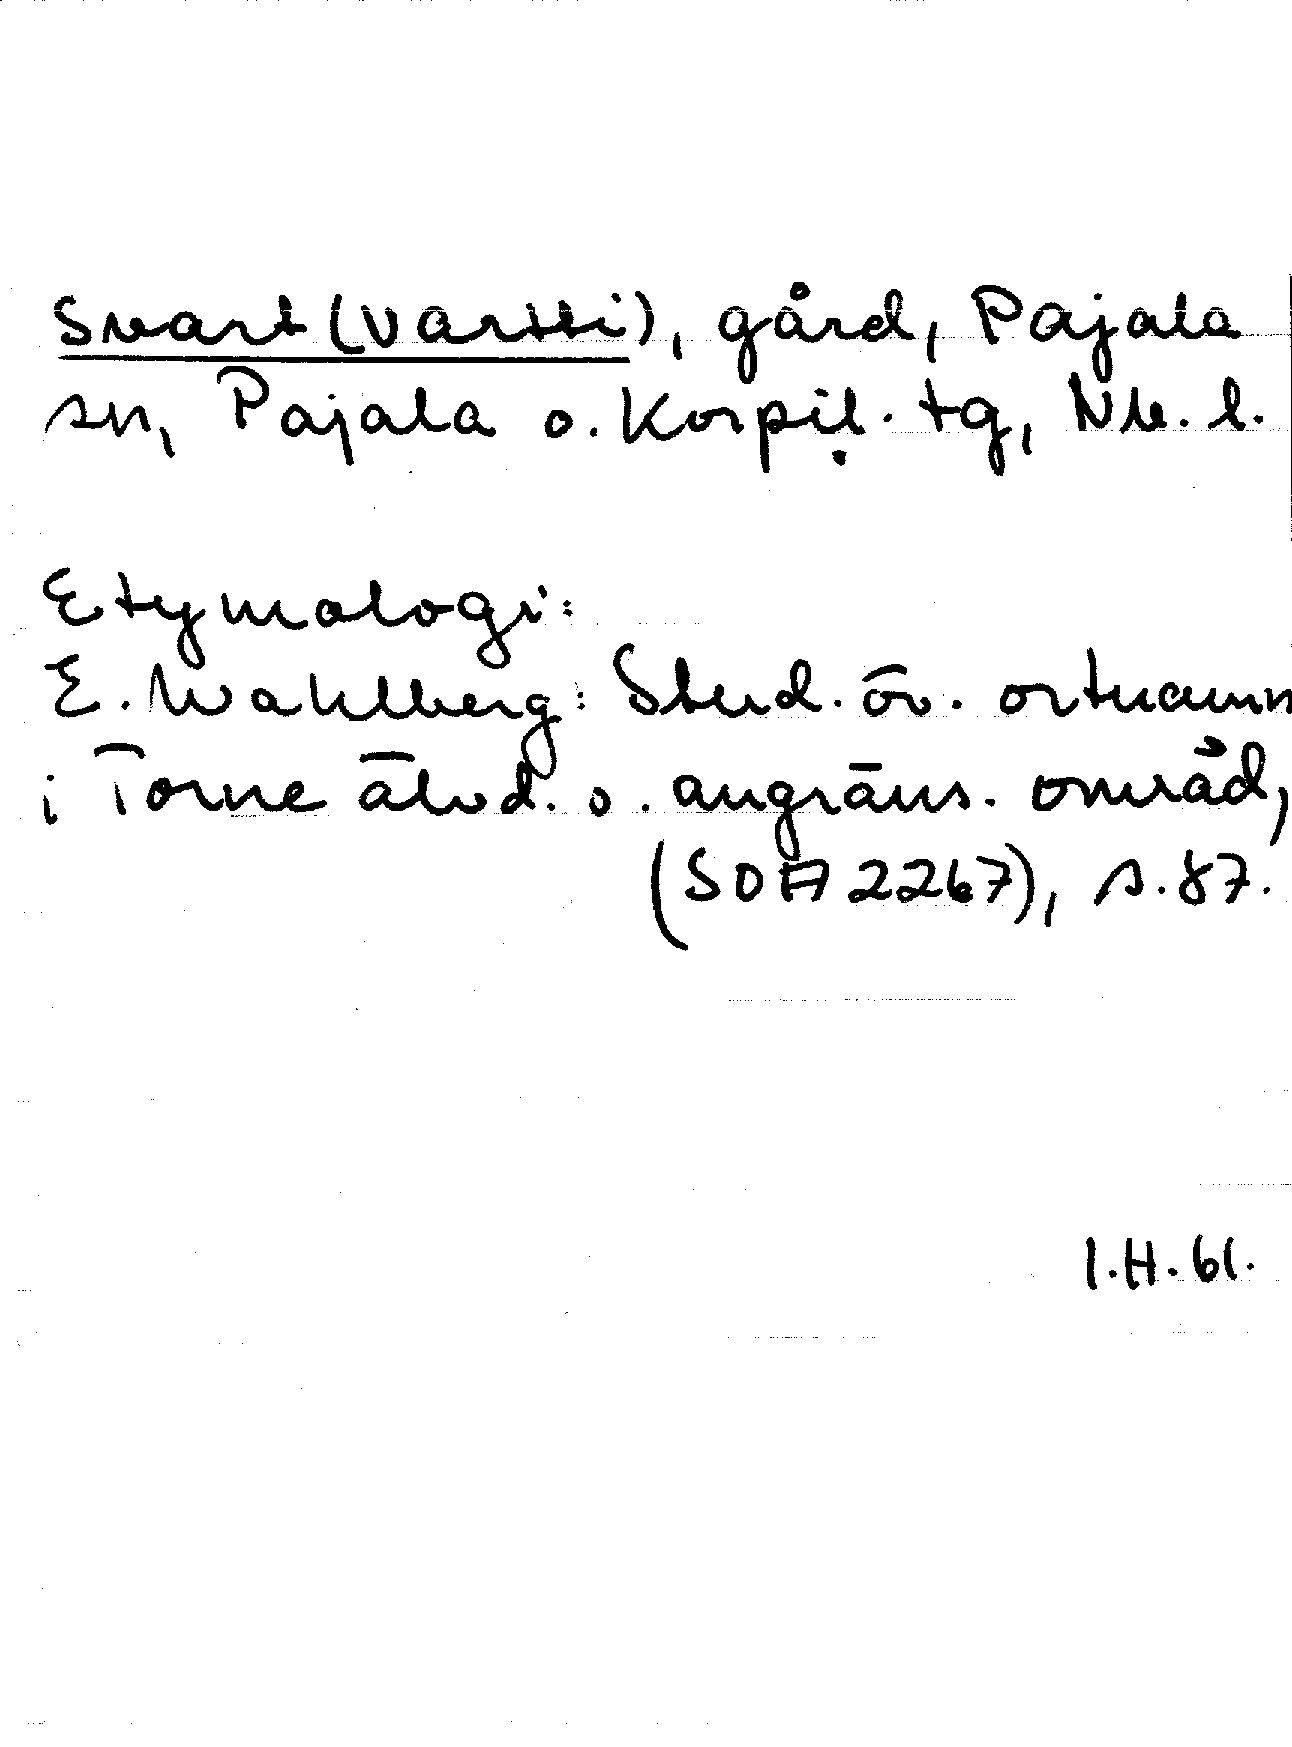 Svart (Vartti), gård, Pajala
sn, Pajala o. Korpil. tg, Nb. l.
Etymologi:
E. Wahlberg: Stud. öv. ortnamn
i Torne älvd. o. angräns. områd,
(SOA 2267), s. 87.
I.H. 61.